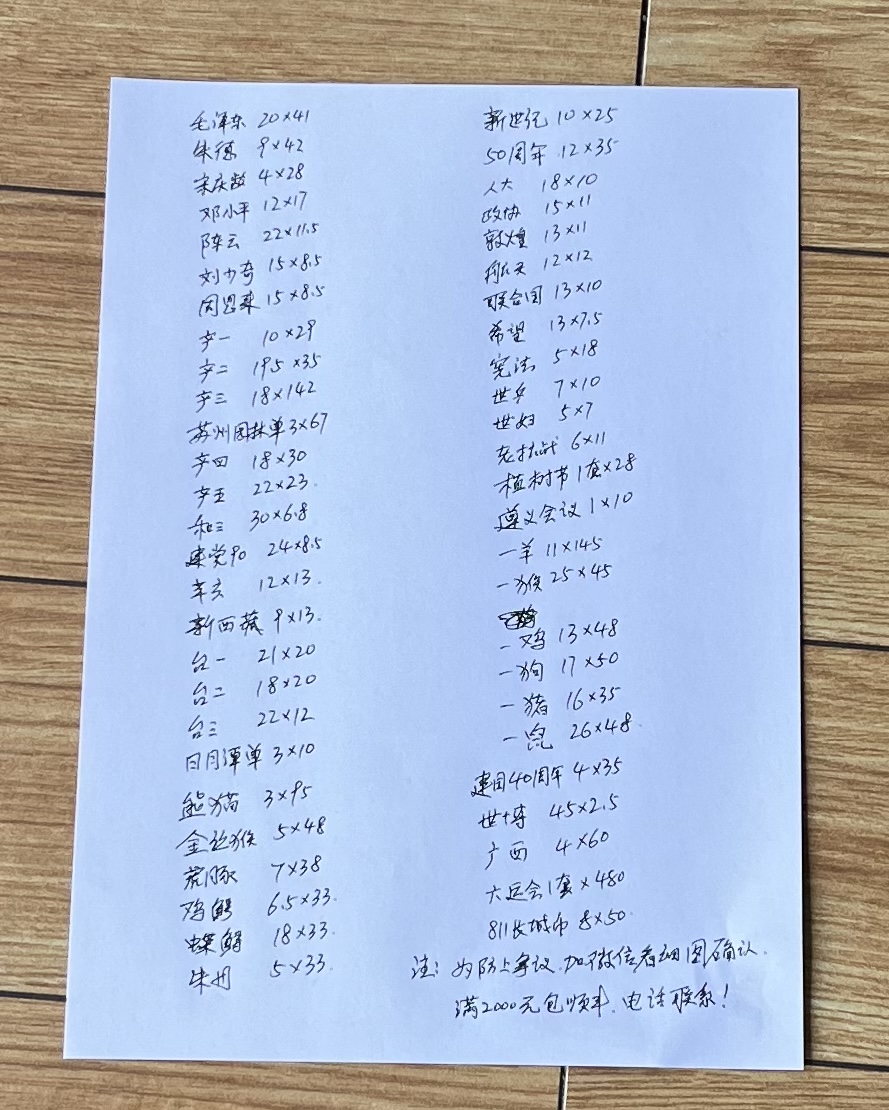 毛泽东 20×41
朱德 9×42
宋庆龄 4×28
邓小平 12×17
陈云 22×11.5
刘少奇 15×8.5
周恩来 15×8.5
字一 10×29
字二 19.5×35
字三 18×142
苏州园林单 3×67
字四 18×30
字五 22×23.
和三 30×6.8
建党90 24×8.5
辛亥 12×13.
新西藏 9×13.
台一 21×20
台二 18×20
台三 22×12
日月潭单 3×10
熊猫 3×95
金丝猴 5×48
5×38
鸡鳄 6.5×33.
蝶鲟 18×33.
朱鹮 5×33.
新世纪 10×25
50周年 12×35
人大 18×10
政协 15×11
敦煌 13×11
航天 12×12
联合国 13×10
希望 13×7.5
宪法 5×18
世乒 7×10
世妇 5×7
老抗战 6×11
植树节1套×28
遵义会议 1×10
一羊 11×145
一猴 25×45
一鸡 13×48
一狗 17×50
一猪 16×35
一鼠 26×48.
建国40周年 4×35
世博 45×2.5
广西 4×60
六运会1套×480
811长城币 8×50.
注：为防止争议.加微信看细图确认.
满2000元包顺丰.电话联系！